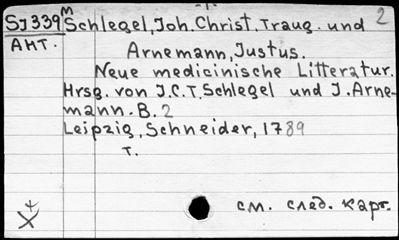 -1-
SJ339 M Schlegel, Joh. Christ. Traug. und 2
АНТ. Arnemann, Justus.
Neue medicinische Litteratur.
Hrsg. von J.C.T. Schlegel und J. Arne-
mann. B. 2
Leipzig, Schneider, 1789
т.
см. след. карт.